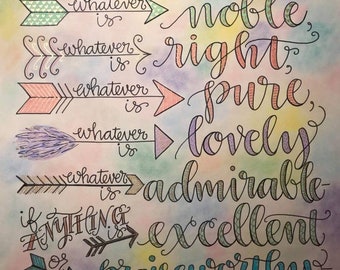 whatever is noble
whatever is right,
whatever is pure,
whatever is lovely
whatever is admirable-
if ANYTHING is excellent
or praiseworthy